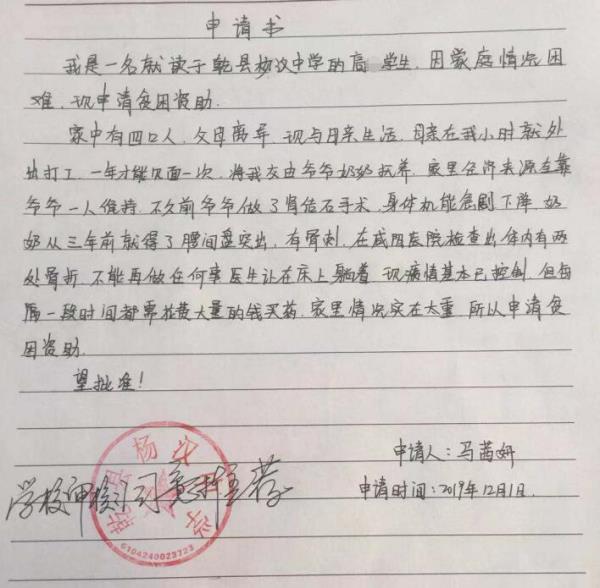 申请书
我是一名就读于乾县杨汉中学的高 学生，因家庭情况困
难，现申请贫困资助．
家中有四口人，父母离异，现与母亲生活，母亲在我小时就外
出打工，一年才能见面一次，将我交由爷爷奶奶抚养，家里经济来源在靠
爷爷一人维持，不久前爷爷做了肾结石手术，身体机能急剧下降，奶
奶从三年前就得了腰间盘突出，有骨刺，在咸阳医院检查出体内有两
处骨折，不能再做任何事，医生让在床上躺着，现病情基本已控制，但每
隔一段时间都要花费大量的钱买药，家里情况实在太重，所以申请贫
困资助．
望批准！
申请人：马茜妍
学校审核 同意推荐
申请时间：2019年12月1日．
乾县杨汉中学
6104240023723